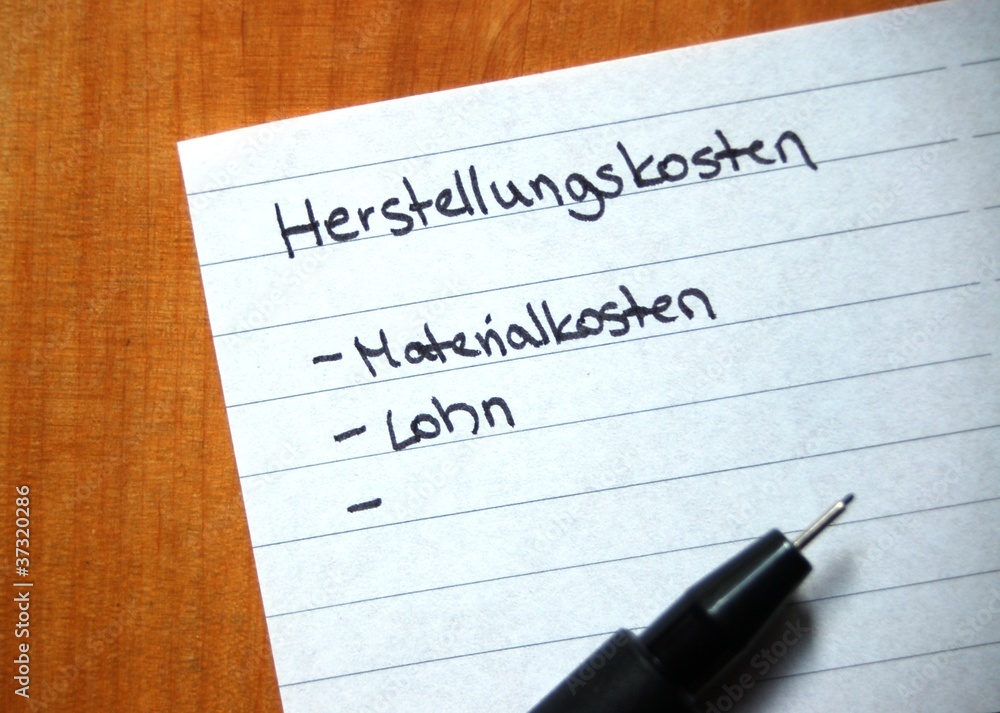 Herstellungskosten
- Materialkosten
- Lohn
-
Adobe Stock | #37320286